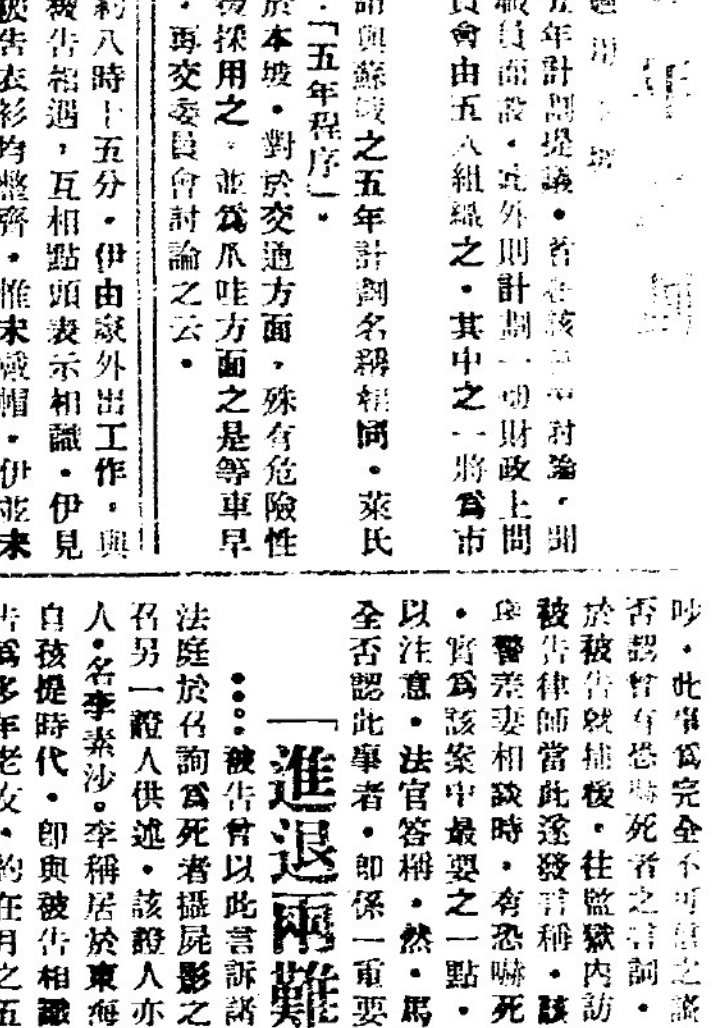 五年計劃提議・首在該  討論・聞
職員面設・此外則計劃一切財政上問
員會由五人組織之・其中之一將爲市
詔與蘇俄之五年計劃名稱相同・萊氏
・「五年程序」・
於本坡・對於交通方面・殊有危險性
後採用之・並爲爪哇方面之是等車早
・再交委員會討論之云・
約八時十五分・伊由家外出工作・與
被告相遇，互相點頭表示相識・伊見
被告衣衫均整齊・惟未戴帽・伊並未
吵・此事爲完全不可信之謠
否認曾有恐嚇死者之言詞・
於被告就捕後・往監獄內訪
被告律師當此遂發言稱・該
與警差妻相談時・有恐嚇死
・實爲該案中最要之一點・
以注意・法官答稱・然・馬
全否認此事者・卽係一重要
「進退兩難
・・・・被告曾以此言訴諸
法庭於召詢爲死者攝屍影之
召另一證人供述・該證人亦
人・名李素沙。李稱居於東海
自孩提時代・卽與被告相識
告爲多年老友・約在月之五